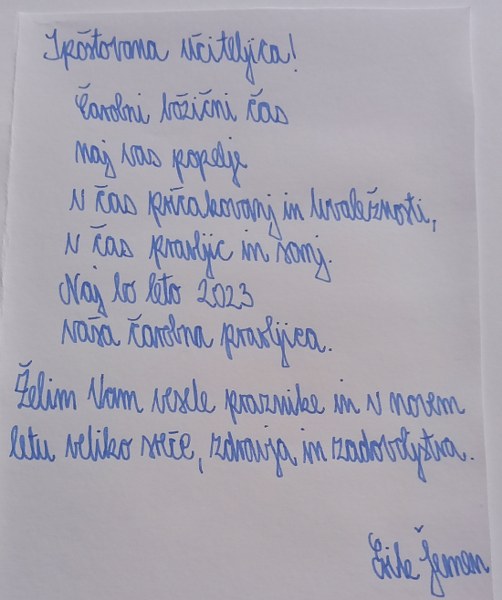 Spoštovana učiteljica!
Čarobni božični čas
naj vas popelje
v čas pričakovanj in hvaležnosti,
v čas pravljic in sanj.
Naj bo leto 2023
vaša čarobna pravljica.
Želim Vam vesele praznike in v novem
letu veliko sreče, zdravja in zadovoljstva.